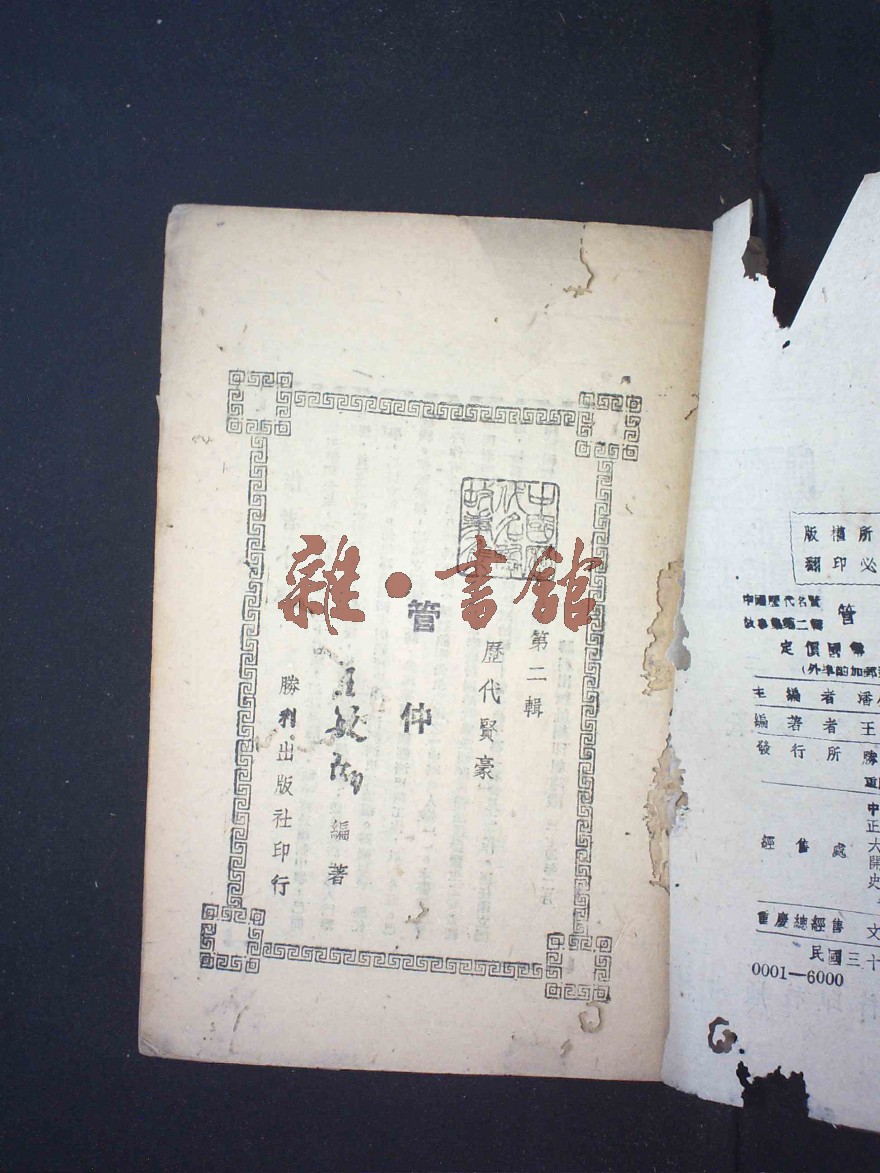 中國歷
代名賢
故事集
第二輯
歷代賢豪
管仲
王敏
編著
勝利出版社印行
雜·書館
版權所
翻印必
中國歷代名賢
故事集第二輯
管
定價國幣
(外埠酌加郵
主編者 潘
編著者 王
發行所 勝
重
經售處
中
正
大
開
史
重慶總經售 文
民國三十
0001—6000